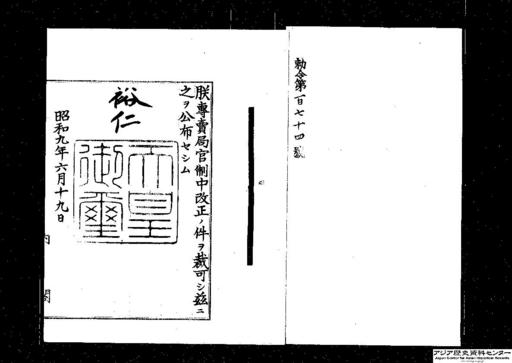 勅令第百七十四號
朕專賣局官制中改正ノ件ヲ裁可シ茲ニ
之ヲ公布セシム
裕仁
天皇
御璽
昭和九年六月十九日
内閣
アジア歴史資料センター
Japan Center for Asian Historical Records